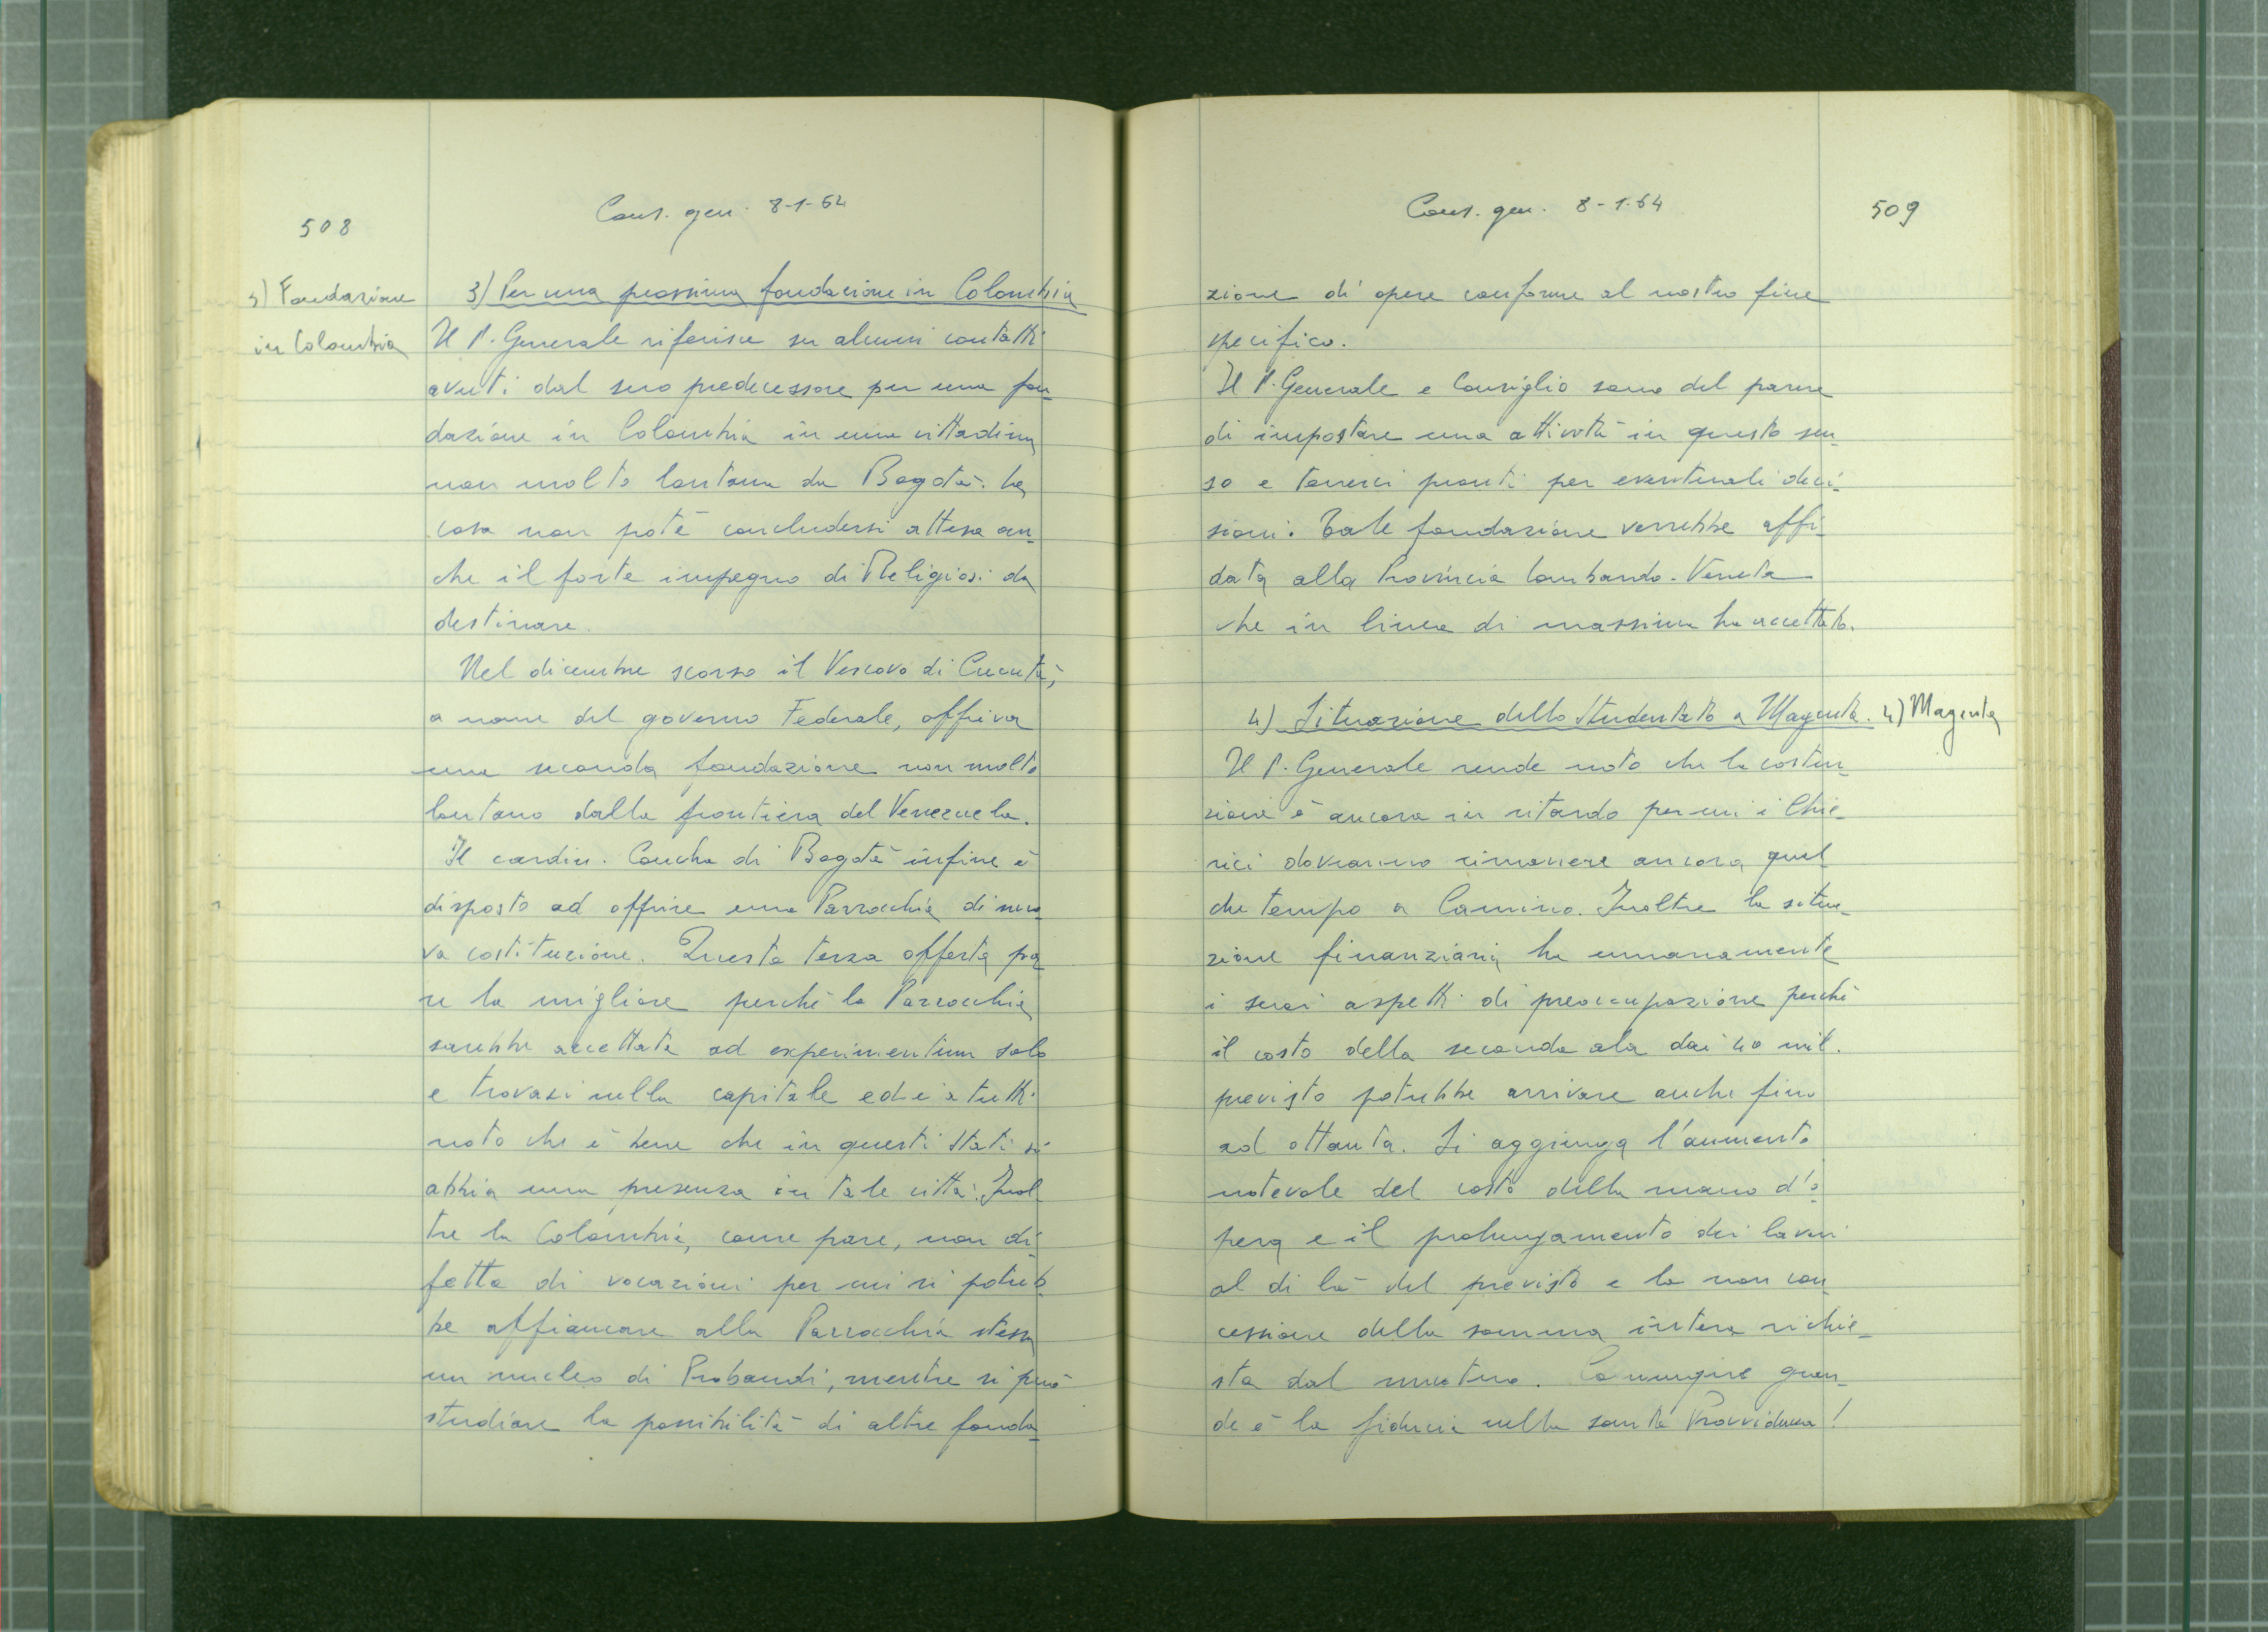 508
Cons. gen. 8-1-64
3) Fondazione
in Colombia
3) Per una prossima fondazione in Colombia
Il P. Generale riferisce su alcuni contatti
avuti dal suo predecessore per una fon-
dazione in Colombia in una cittadina
non molto lontana da Bogotà. La
cosa non poté concludersi attesa an-
che il forte impegno di Religiosi da
destinare.
Nel dicembre scorso il Vescovo di Cucutà,
a nome del governo Federale, offriva
una seconda fondazione non molto
lontano dalla frontiera del Venezuela.
Il cardin. Concha di Bogotà infine è
disposto ad offrire una Parrocchia di nuo-
va costituzione. Questa terza offerta pa-
re la migliore perché la Parrocchia
sarebbe accettata ad experimentum solo
e trovasi nella capitale ed è a tutti
noto che è bene che in questi Stati si
abbia una presenza in tale città. Inol
tre la Colombia, come pare, non di-
fetta di vocazioni per cui si potreb-
be affiancare alla Parrocchia stessa
un nucleo di Probandi, mentre si può
studiare la possibilità di altre fonda-
Cons. gen. 8-1-64
509
zione di opere conforme al nostro fine
specifico.
Il P. Generale e Consiglio sono del parere
di impostare una attività in questo sen-
so e tenerci pronti per eventuali deci-
sioni. Tale fondazione verrebbe affi-
data alla Provincia Lombardo-Veneta
che in linea di massima ha accettato.
4) Situazione dello Studentato a Magenta.
4) Magenta
Il P. Generale rende noto che la costru-
zione è ancora in ritardo per cui i Chie-
rici dovranno rimanere ancora qual
che tempo a Camino. Inoltre la situa-
zione finanziaria ha umanamente
i suoi aspetti di preoccupazione perché
il costo della seconda ala dai 40 mil.
previsto potrebbe arrivare anche fino
ad ottanta. Si aggiunga l'aumento
notevole del costo della mano d'o-
pera e il prolungamento dei lavori
al di là del previsto e la non con
cessione della somma intera richie-
sta dal mutuo. Comunque gran-
de è la fiducia nella santa Provvidenza!